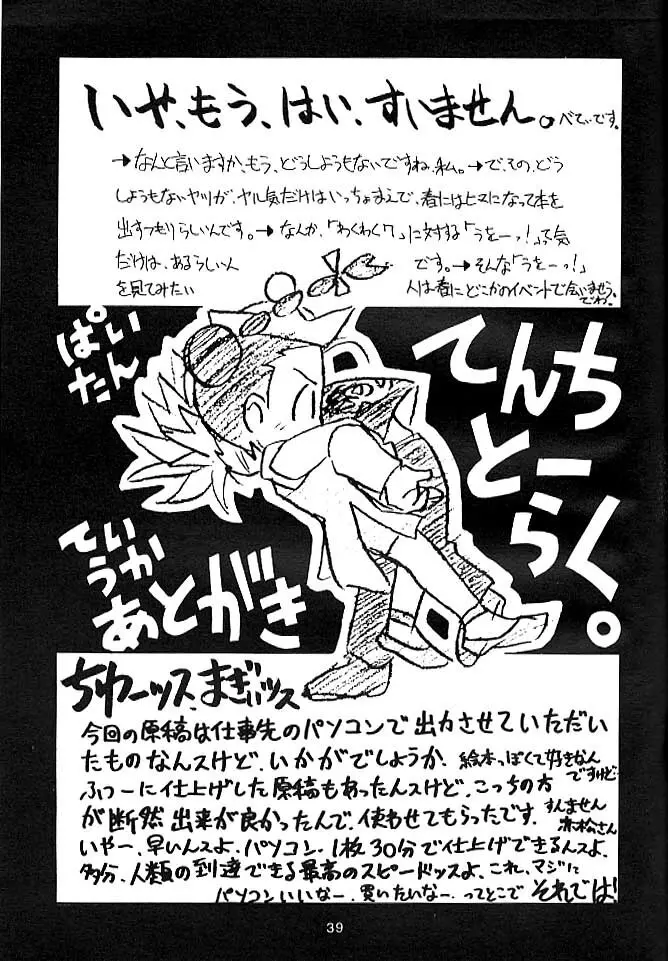 いや、もう、はい、すいません。べてぃです。
→なんと言いますか、もう、どうしようもないですね、私。→で、その、どう
しようもないヤツが、ヤル気だけはいっちょまえで、春にはヒマになって本を
出すつもりらしいんです。→なんか、「わくわく7」に対する「うをーっ!」って気
だけは、あるらしい人
を見てみたい
です。→そんな「うをーっ!」
人は春にどこかのイベントで会いませう。
でわ。
ぱい
たん
てんち
とー
らく。
てい
うか
あとがき
ちゅーッス、まぎぃッス
今回の原稿は仕事先のパソコンで出力させていただい
たものなんスけど、いかがでしょうか、絵本っぽくて好きなん
ですけど…
ふつーに仕上げした原稿もあったんスけど、こっちの方
が断然出来が良かったんで、使わせてもらったです。すんません
赤松さん
いやー、早いんスよ、パソコン、1枚30分で仕上げできるんスよ、
多分、人類の到達できる最高のスピードッスよ、これ、マジに
パソコンいいなー、買いたいなー、ってとこで それでは!
39